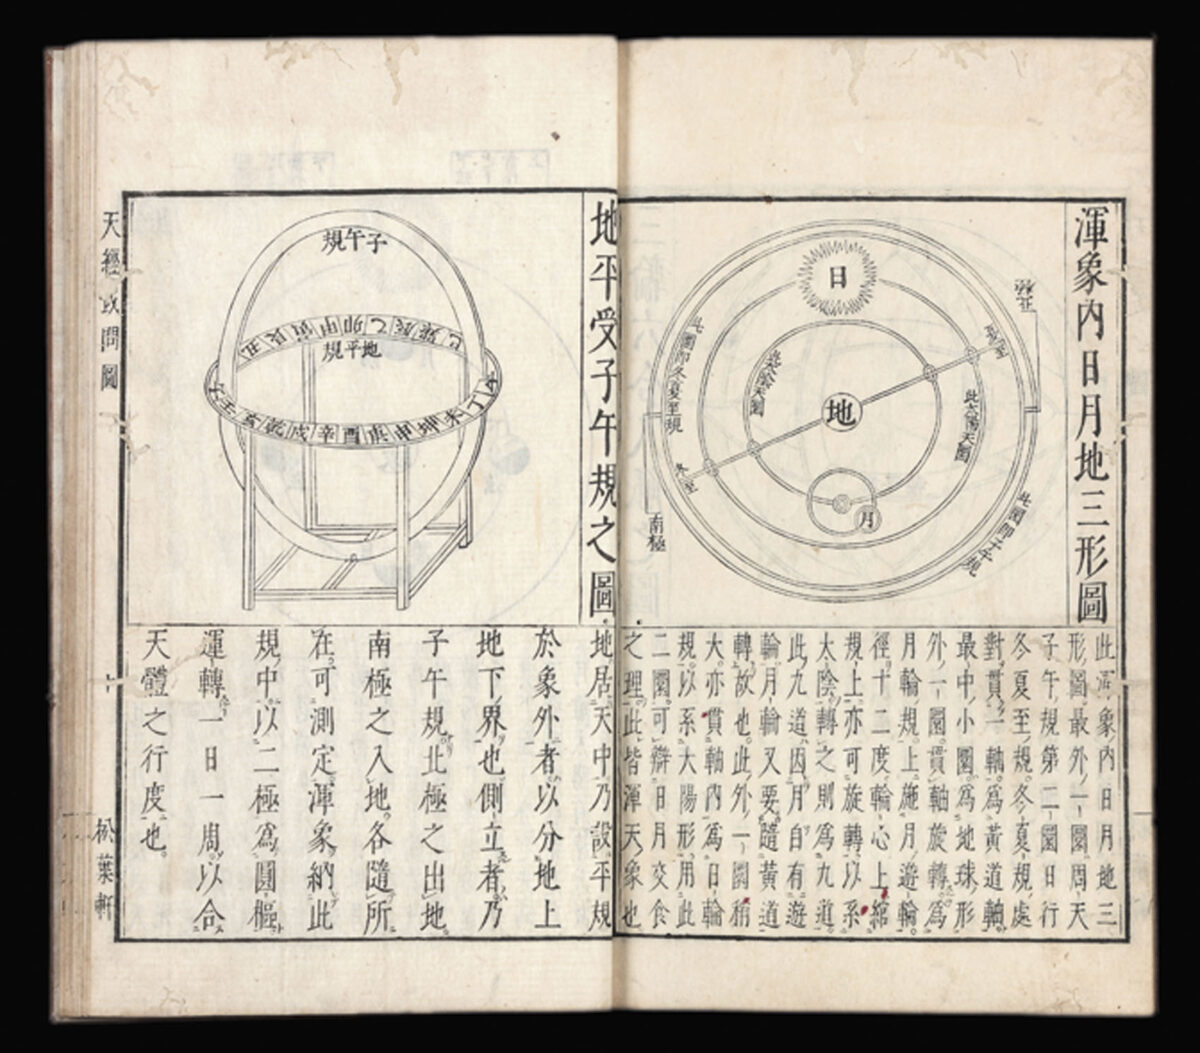 渾象内日月地三形圖
日
地
月
此太陽天圏
此太陰天圏
此圏即冬夏至規
此圏即子午規
南極
此渾象内日月地三
形圖最外一圏周天
子午規第二圏日行
冬夏至規冬夏規處
對貫一軸為黄道軸
最中小圏為地球形
外一圏貫軸旋轉為
月輪規上施月遊輪
徑十二度輪心上綰
規上亦可旋轉以系
太陰轉之則為九道
此九道因月自有遊
輪月輪又要隨黄道
轉故也此外一圏稍
大亦貫軸内為日輪
規以系大陽形用此
二圏可辯日月交食
之理此皆渾天象也
地平受子午規之圖
子午規
地平規
巳巽辰乙卯甲寅艮丑
子壬亥乾戌辛酉庚申坤未丁午
地居天中乃設平規
於象外者以分地上
地下界也側立者乃
子午規北極之出地
南極之入地各隨所
在可測定渾象納此
規中以二極為圓樞
運轉一日一周以合
天體之行度也
天經或問圖
松葉軒